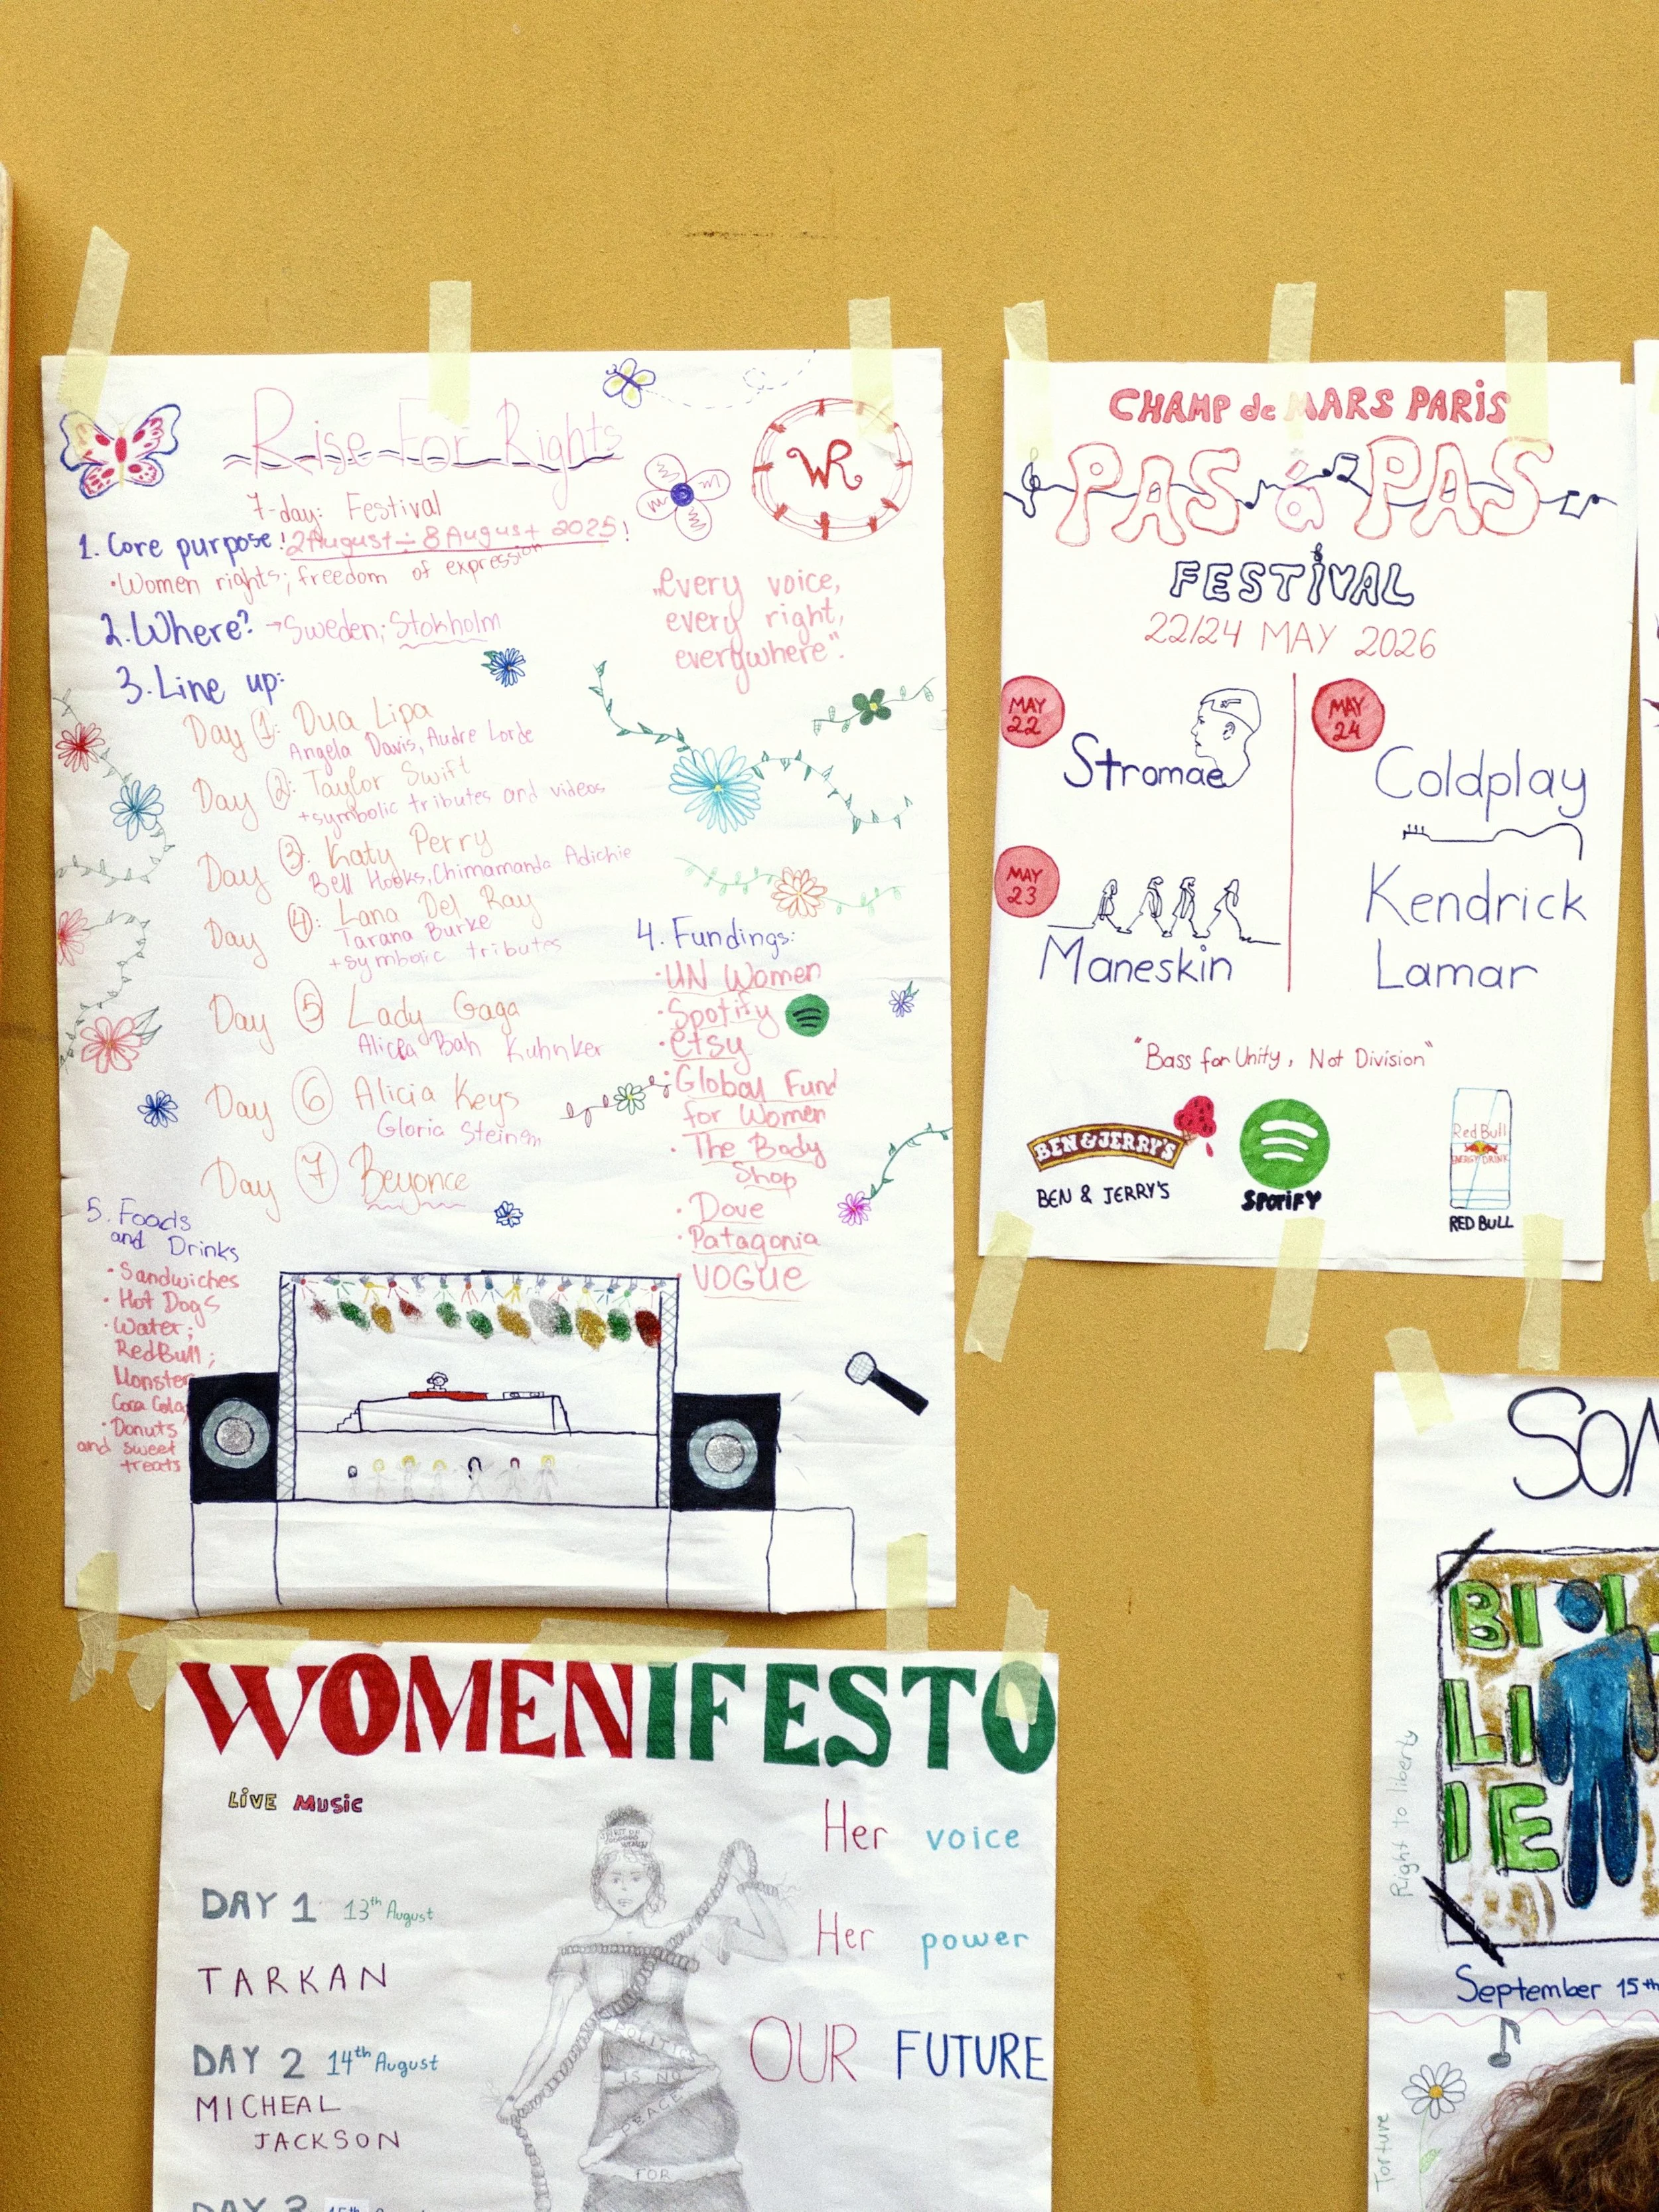 Rise For Rights
WR
7-day: Festival
1. Core purpose! 2 August - 8 August 2025!
•Women rights; freedom of expression
2. Where? → Sweden; Stokholm
„every voice,
every right,
everywhere".
3. Line up:
Day 1: Dua Lipa
Angela Davis, Audre Lorde
Day 2: Taylor Swift
+symbolic tributes and videos
Day 3: Katy Perry
Bell Hooks, Chimamanda Adichie
Day 4: Lana Del Ray
Tarana Burke
+symbolic tributes
Day 5 Lady Gaga
Bah Kuhnker
Day 6 Alicia Keys
Gloria Steinem
Day 7 Beyonce
4. Fundings:
•UN Women
•Spotify
•etsy
•Global Fund
for Women
•The Body
Shop
•Dove
•Patagonia
•VOGUE
5. Foods
and Drinks
•Sandwiches
•Hot Dogs
•Water;
RedBull;
Monster
Coca Cola,
•Donuts
and sweet
treats
CHAMP de MARS PARIS
PAS à PAS
FESTIVAL
22/24 MAY 2026
MAY
22
Stromae
MAY
23
Maneskin
MAY
24
Coldplay
Kendrick
Lamar
"Bass for Unity, Not Division"
BEN & JERRY'S
BEN & JERRY'S
SPOTIFY
Red Bull
ENERGY DRINK
RED BULL
WOMENIFESTO
LIVE MUSIC
Her voice
Her power
OUR FUTURE
DAY 1 13th August
TARKAN
DAY 2 14th August
MICHEAL
JACKSON
DAY 3
IS NO
PEACE
FOR
SON
BI
LI
IE
Right to liberty
September 15th
Torture